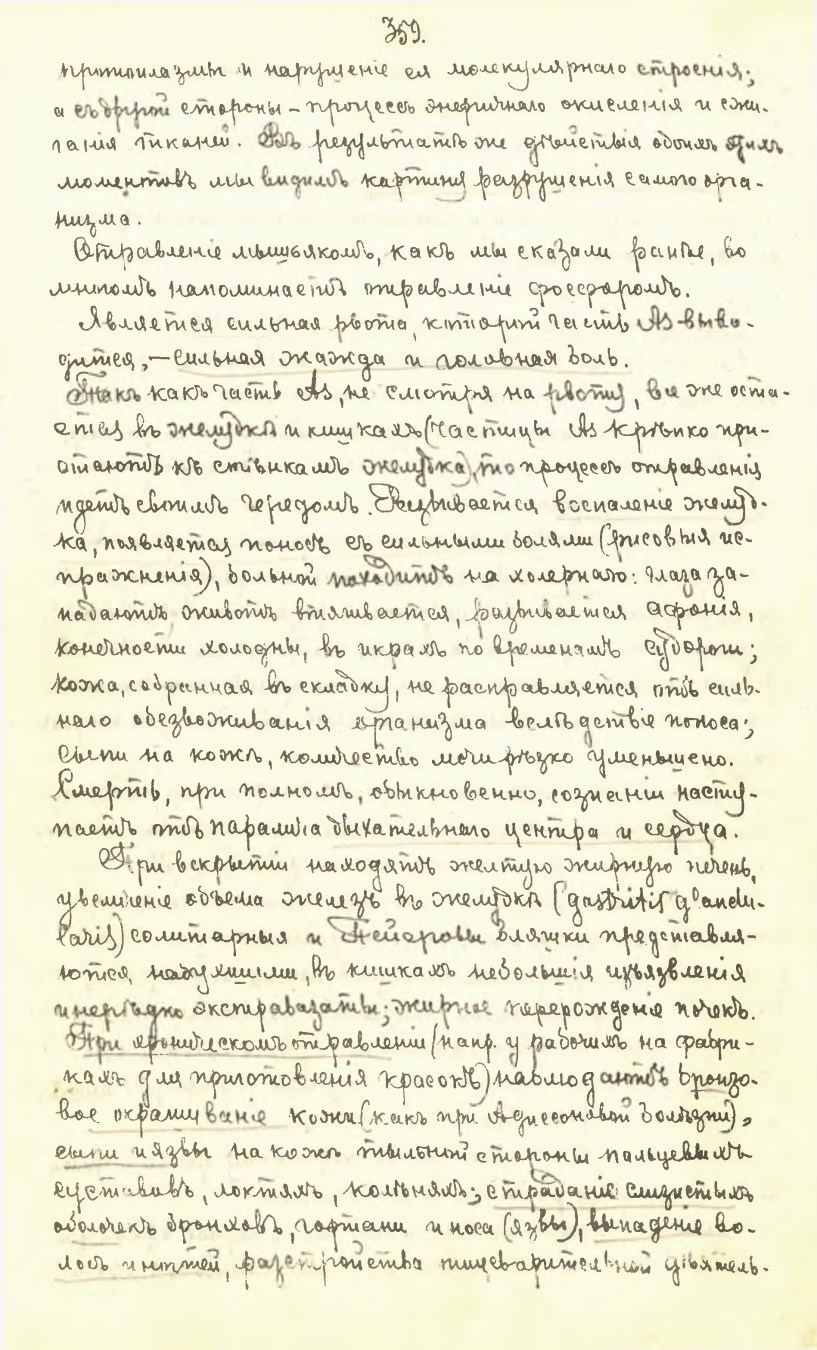 359.
протоплазмы и нарушеніе ея молекулярнаго строенія;
а съ другой стороны – процессъ энергичнаго окисленія и сжи-
ганія тканей. Въ результатѣ же дѣйствія обоихъ этихъ
моментовъ мы видимъ картину разрушенія самого орга-
низма.
Отравленіе мышьякомъ, какъ мы сказали ранѣе, во
многомъ напоминаетъ отравленіе фосфоромъ.
Является сильная рвота, которой часть As выво-
дится, – сильная жажда и головная боль.
Такъ какъ часть As, не смотря на рвоту, все же оста-
ется въ желудкѣ и кишкахъ (частицы As крѣпко при-
стаютъ къ стѣнкамъ желудка), то процессъ отравленія
идетъ своимъ чередомъ. Развивается воспаленіе желуд-
ка, появляется поносъ съ сильными болями (рисовыя ис-
пражненія), больной походитъ на холернаго: глаза за-
падаютъ животъ втягивается, развивается афонія,
конечности холодны, въ икрахъ по временамъ судороги;
кожа, собранная въ складку, не расправляется отъ силь-
наго обезвоживанія организма вслѣдствіе поноса;
сыпи на кожѣ, количество мочи рѣзко уменьшено.
Смерть, при полномъ, обыкновенно, сознаніи насту-
паетъ отъ паралича дыхательнаго центра и сердца.
При вскрытіи находятъ желтую жирную печень,
увеличеніе объема железъ въ желудкѣ (gastritis glandu-
laris) солитарныя и Пейеровы бляшки представля-
ются набухшими, въ кишкахъ небольшія изъязвленія
и нерѣдко экстравазаты; жирное перерожденіе почекъ.
При хроническомъ отравленіи (напр. у рабочихъ на фабри-
кахъ для приготовленія красокъ) наблюдаютъ бронзо-
вое окрашиваніе кожи (какъ при Адиссоновой болѣзни),
сыпи и язвы на кожѣ тыльной стороны пальцевыхъ
суставовъ, локтяхъ, колѣняхъ; страданіе слизистыхъ
оболочекъ бронховъ, гортани и носа (язвы), выпаденіе во-
лосъ и ногтей, разстройства пищеварительной дѣятель-